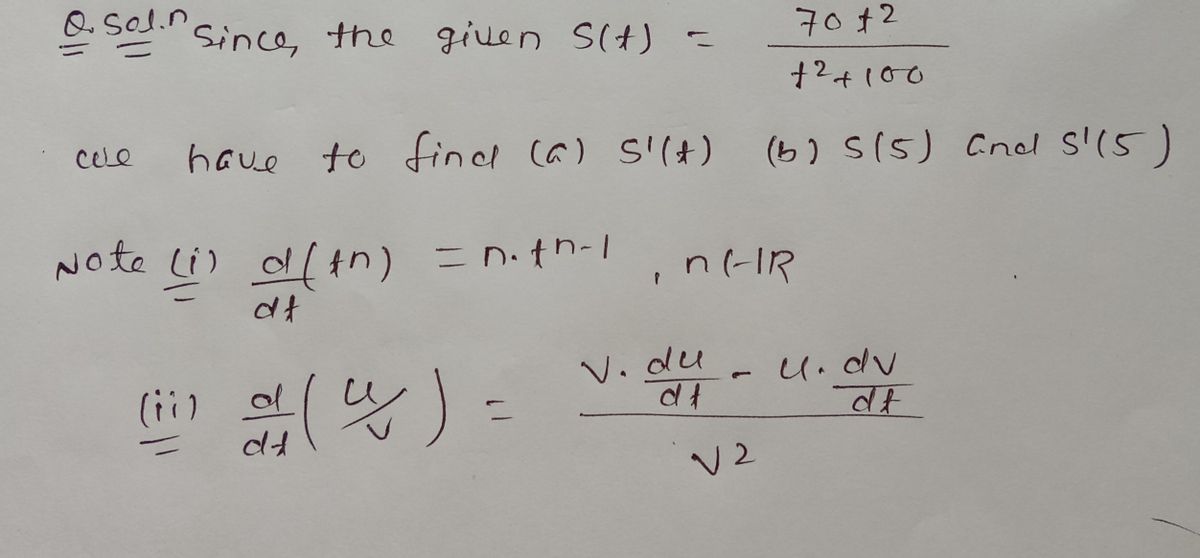 Q. Sol.n Since, the given S(t) = 70t² / t²+100
we have to find (a) S'(t) (b) S(5) and S'(5)
Note (i) d/dt (tn) = n.tn-1, n∈IR
(ii) d/dt (u/v) = v.du/dt - u.dv/dt / v²